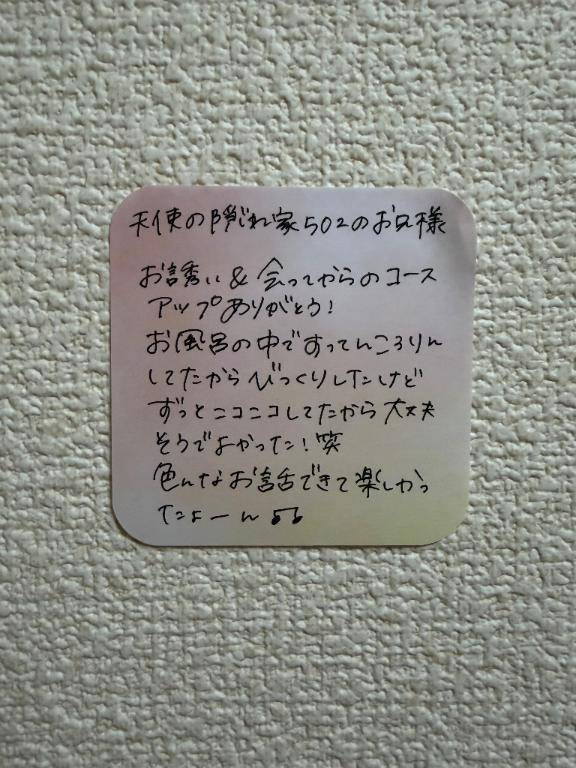 天使の隠れ家502のお兄様
お誘い&会ってからのコース
アップありがとう!
お風呂の中ですってんころりん
してたからびっくりしたけど
ずっとニコニコしてたから大丈夫
そうでよかった!笑
色んなお話できて楽しかっ
たよーん♫